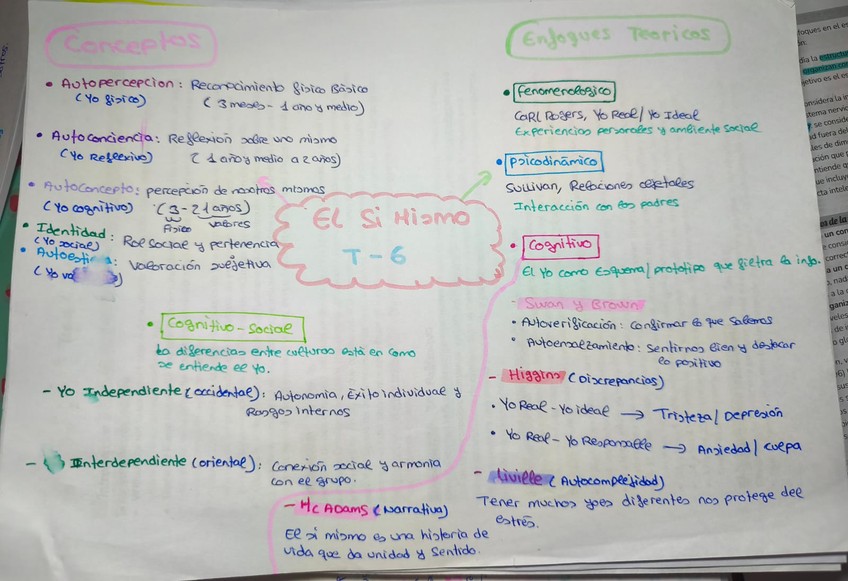 Conceptos
• Autopercepcion: Reconocimiento físico Básico
(Yo físico) (3 meses - 1 año y medio)
• Autoconciencia: Reflexión sobre uno mismo
(Yo Reflexivo) (1 año y medio a 2 años)
• Autoconcepto: percepción de nosotros mismos
(Yo cognitivo) (3 - 21 años)
físico valores
• Identidad: Rol social y pertenencia
(Yo social)
• Autoestima: Valoración subjetiva
(Yo
El Si Mismo
T-6
• Cognitivo-Social
La diferencias entre culturas está en como
se entiende el Yo.
- Yo Independiente (occidental): Autonomia, Éxito individual y
Rasgos internos
- Interdependiente (oriental): Conexión social y armonia
con el grupo.
Enfoques Teoricos
• Fenomenologico
Carl Rogers, Yo Real / Yo Ideal
Experiencias personales y ambiente social
• Psicodinámico
Sullivan, Relaciones objetales
Interacción con los padres
• Cognitivo
El Yo como Esquema / prototipo que filtra la info.
- Swan y Brown
• Autoverificación: confirmar lo que sabemos
• Autoensalzamiento: Sentirnos bien y destacar
lo positivo
- Higgins (Discrepancias)
• Yo Real - Yo ideal → Tristeza / Depresión
• Yo Real - Yo Responsable → Ansiedad / culpa
- Liville (Autocomplejidad)
Tener muchos yoes diferentes nos protege del
estrés.
- Mc Adams (Narrativa)
El si mismo es una historia de
vida que da unidad y sentido.